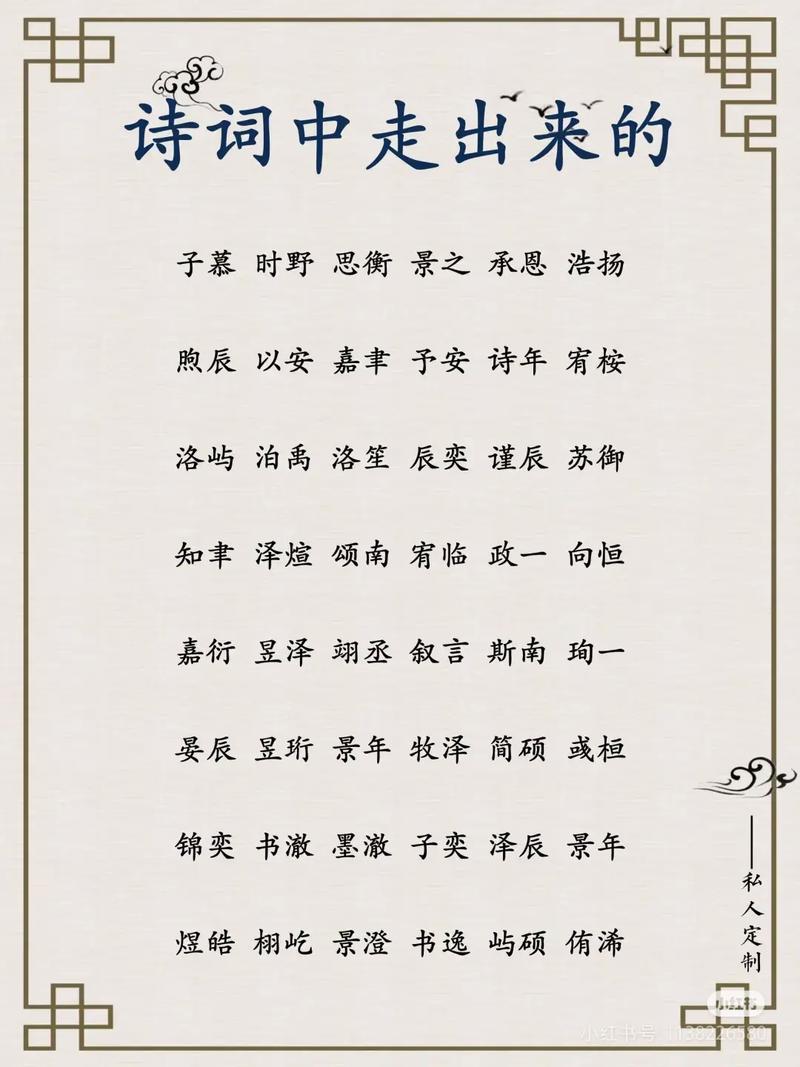 诗词中走出来的
子慕 时野 思衡 景之 承恩 浩扬
煦辰 以安 嘉聿 予安 诗年 宥桉
洛屿 泊禹 洛笙 辰奕 谨辰 苏御
知聿 泽煊 颂南 宥临 政一 向恒
嘉衍 昱泽 翊丞 叙言 斯南 珣一
晏辰 昱珩 景年 牧泽 简硕 彧桓
锦奕 书澈 墨澈 子奕 泽辰 景年
煜皓 栩屹 景澄 书逸 屿硕 侑浠
——私人定制
小红书
小红书号 1138226580